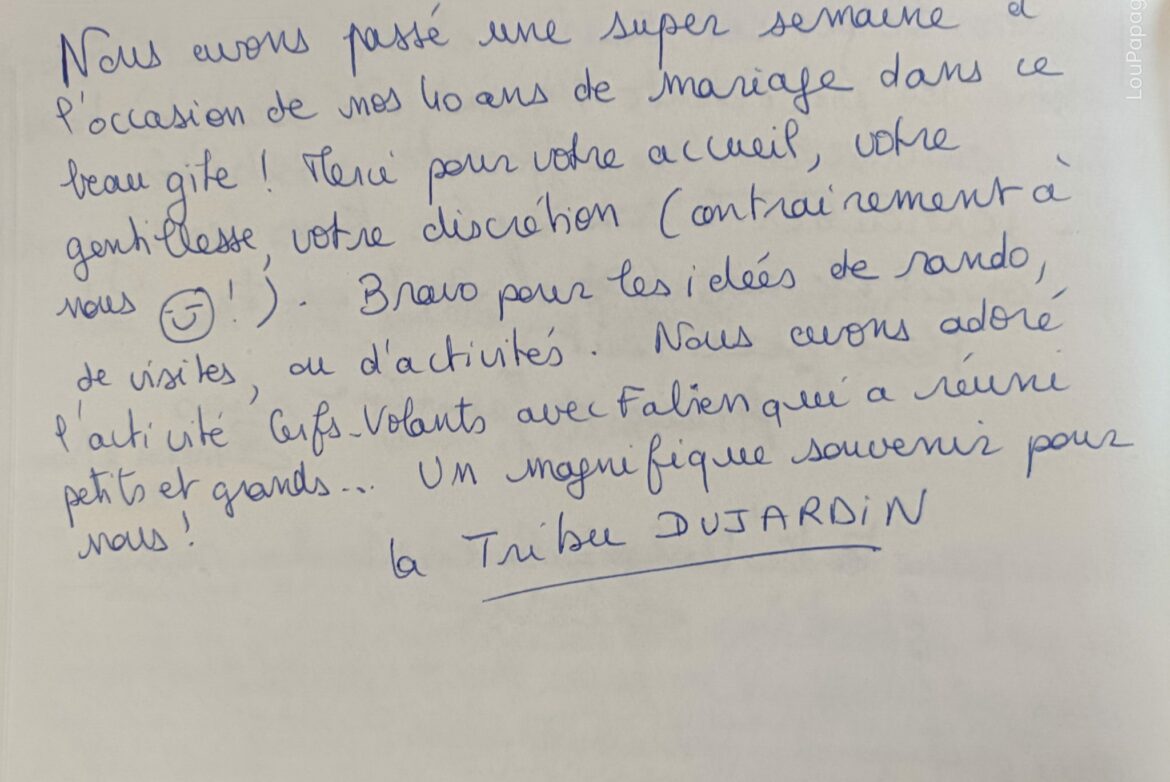 Nous avons passé une super semaine à
l'occasion de nos 40 ans de mariage dans ce
beau gite ! Merci pour votre accueil, votre
gentillesse, votre discrétion (contrairement à
nous ☺ ! ). Bravo pour les idées de rando,
de visites, ou d'activités. Nous avons adoré
l'activité Cerfs-Volants avec Fabien qui a réuni
petits et grands... Un magnifique souvenir pour
nous !
la Tribu DUJARDiN
LouPapag